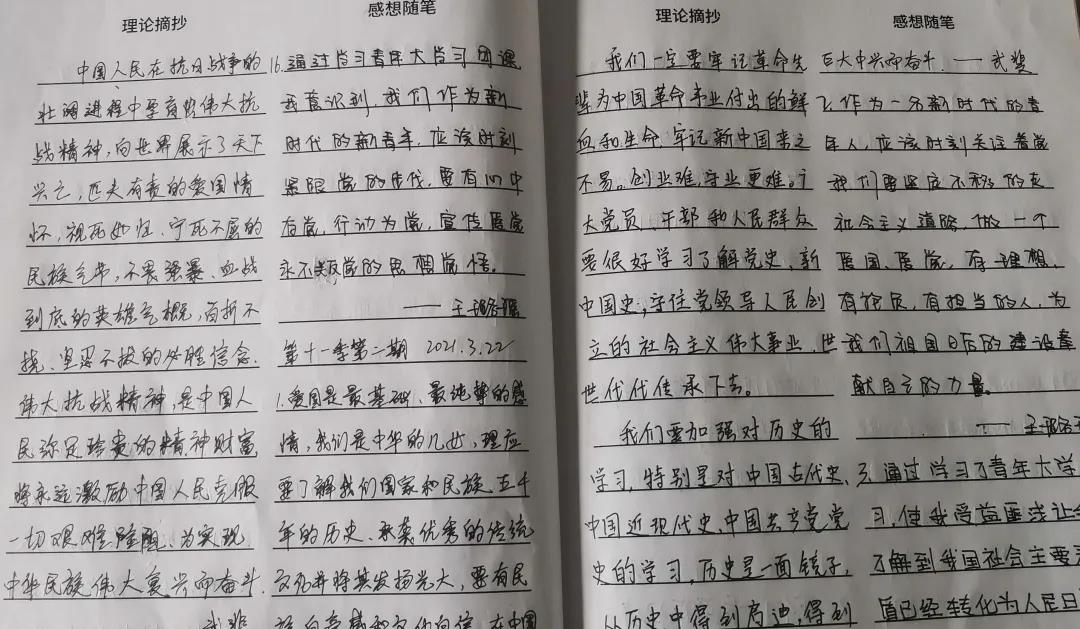 理论摘抄
中国人民在抗日战争的
壮阔进程中孕育出伟大抗
战精神,向世界展示了天下
兴亡,匹夫有责的爱国情
怀,视死如归、宁死不屈的
民族气节,不畏强暴、血战
到底的英雄气概,百折不
挠、坚忍不拔的必胜信念.
伟大抗战精神,是中国人
民弥足珍贵的精神财富
将永远激励中国人民克服
一切艰难险阻、为实现
中华民族伟大复兴而奋斗.
感想随笔
16.通过学习青年大学习团课
我意识到,我们作为新
时代的新青年,应该时刻
紧跟党的步伐,要有心中
有党,行动为党,宣传爱党
永不叛党的思想觉悟。
第十一季第二期 2021.3.22
1.爱国是最基础、最纯粹的感
情,我们是中华的儿女,理应
要了解我们国家和民族五千
年的历史、承袭优秀的传统
文化并将其发扬光大,要有民
理论摘抄
我们一定要牢记革命先
辈为中国革命事业付出的鲜
血和生命,牢记新中国来之
不易。创业难,守业更难。广
大党员、干部和人民群众
要很好学习了解党史、新
中国史,守住党领导人民创
立的社会主义伟大事业,世
世代代传承下去。
我们要加强对历史的
学习,特别是对中国古代史、
中国近现代史、中国共产党党
史的学习,历史是一面镜子,
从历史中得到启迪,得到
感想随笔
巨大中兴而奋斗.——武斐
2.作为一名新时代的青
年人,应该时刻关注着党
我们要坚定不移的走
社会主义道路,做一个
爱国、爱党、有理想,
有抱负,有担当的人,为
我们祖国日后的建设奉
献自己的力量。
3.通过学习了青年大学
习,使我受益匪浅让我
了解到我国社会主要矛
盾已经转化为人民日